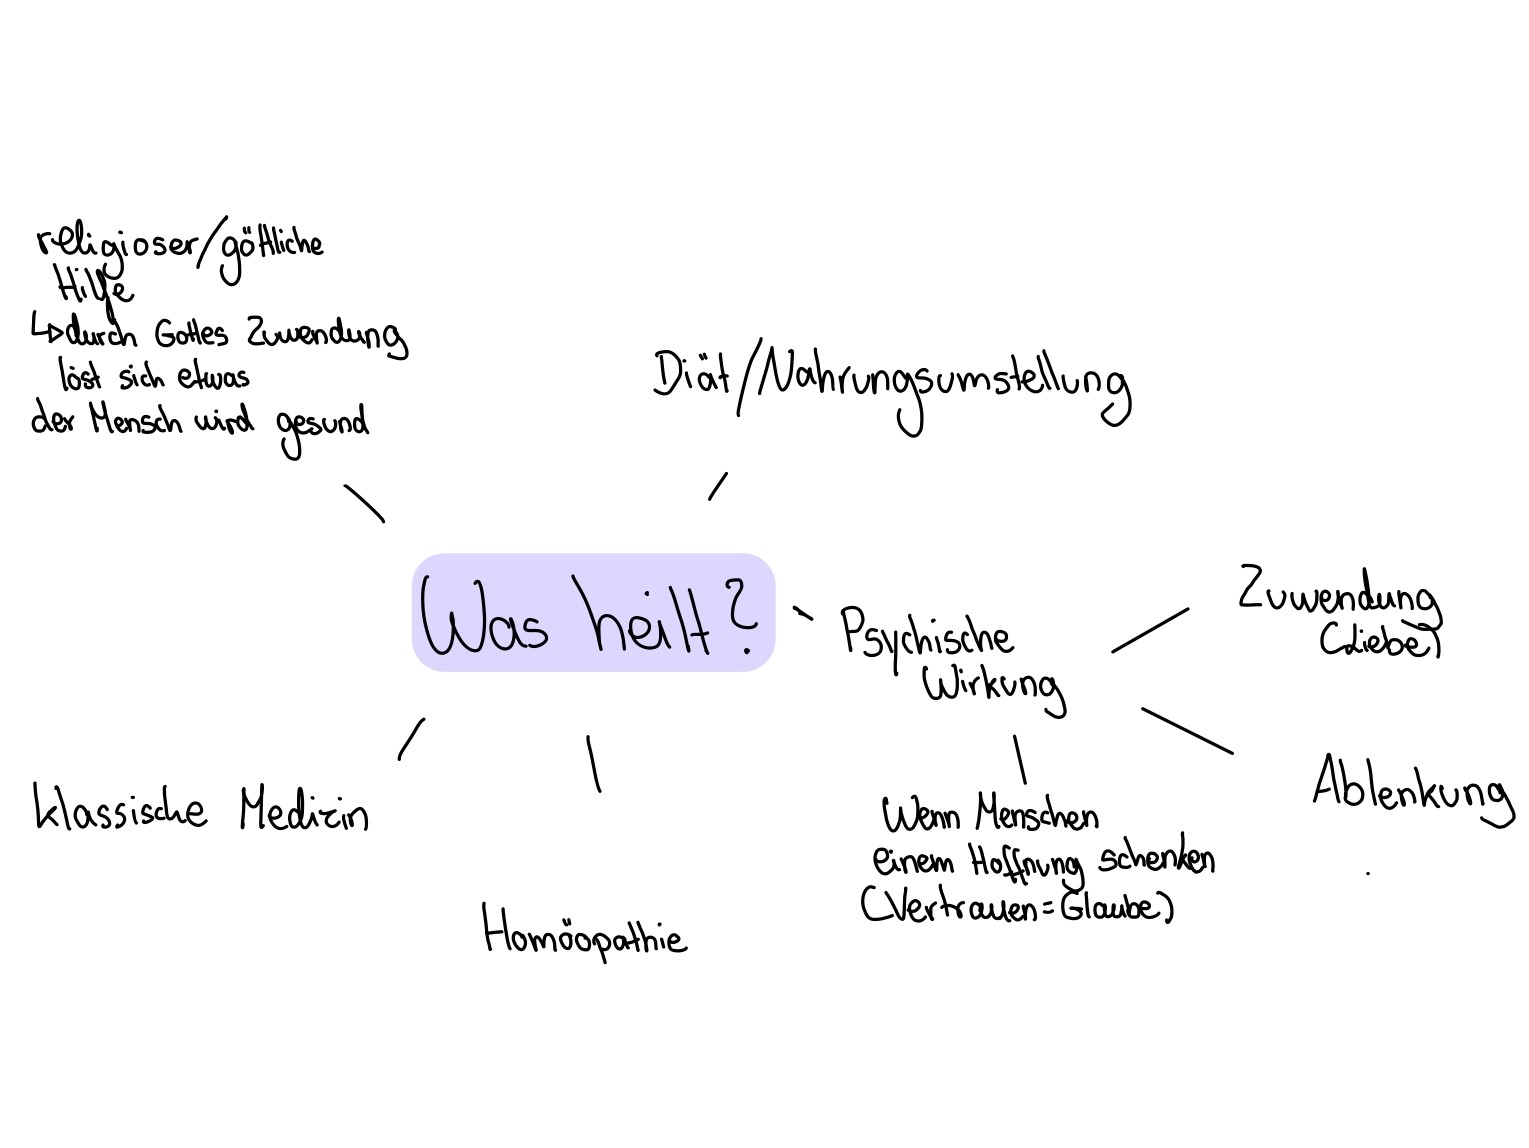 religioser/göttliche
Hilfe
↳durch Gottes Zuwendung
löst sich etwas
der Mensch wird gesund
Diät/Nahrungsumstellung
Was heilt?
Psychische
Wirkung
Zuwendung
(Liebe)
Ablenkung
Wenn Menschen
einem Hoffnung schenken
(Vertrauen=Glaube)
klassische Medizin
Homöopathie